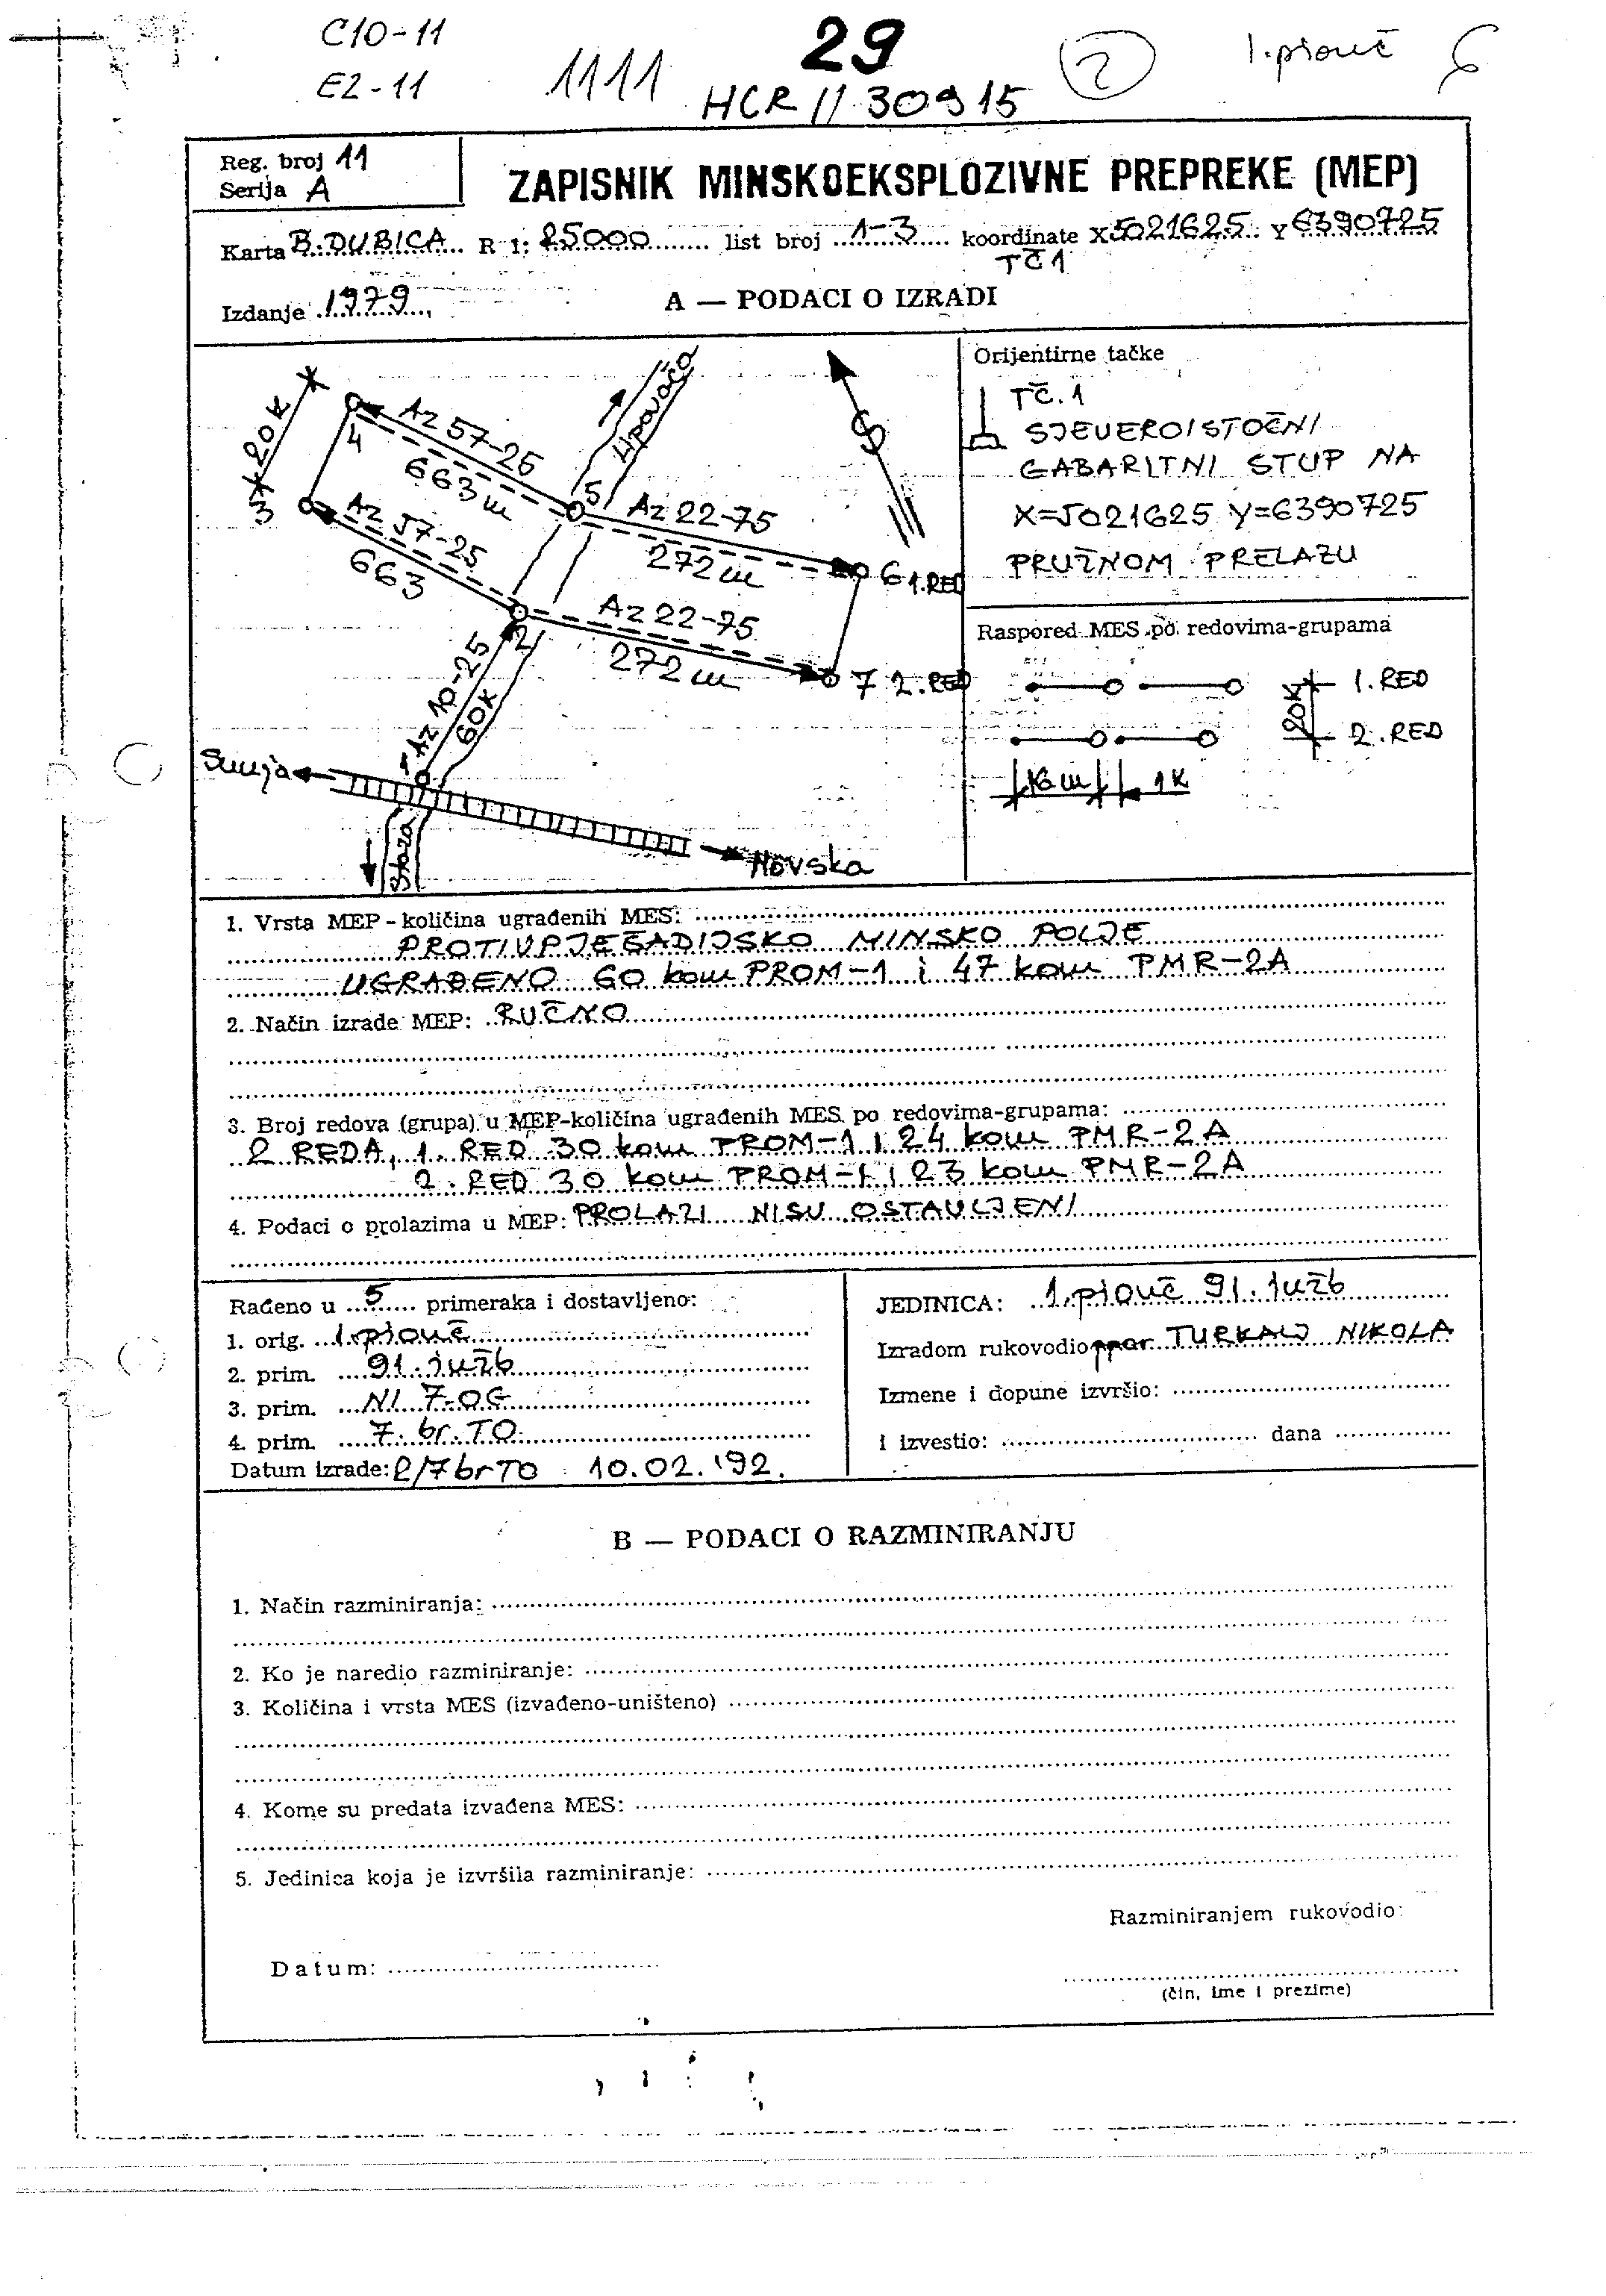 C10-11
E2-11
1111
29
HCR II 30915
2
1.piouč
6
Reg. broj 11
Serija A
ZAPISNIK MINSKOEKSPLOZIVNE PREPREKE (MEP)
Karta B.DUBICA R 1: 25000 list broj 1-3 koordinate X5021625 Y 6390725
TČ1
Izdanje 1979
A — PODACI O IZRADI
20K
4
Az 57-25
663 m
Lipovača
S
3
Az 57-25
663
5
Az 22-75
272 m
6 1.RED
2
Az 22-75
272 m
7 2.RED
Az 10-25
60K
1
Sunja
Staza
Novska
Orijentirne tačke
TČ.1
SJEVEROISTOČNI
GABARITNI STUP NA
X=5021625 Y=6390725
PRUŽNOM PRELAZU
Raspored MES po redovima-grupama
1. RED
20K
2. RED
16 m
1K
1. Vrsta MEP - količina ugrađenih MES:
PROTIVPJEŠADIJSKO MINSKO POLJE
UGRAĐENO 60 kom PROM-1 i 47 kom PMR-2A
2. Način izrade MEP: RUČNO
3. Broj redova (grupa) u MEP-količina ugrađenih MES po redovima-grupama:
2 REDA, 1. RED 30 kom PROM-1 i 24 kom PMR-2A
2. RED 30 kom PROM-1 i 23 kom PMR-2A
4. Podaci o prolazima u MEP: PROLAZI NISU OSTAVLJENI
Rađeno u 5 primeraka i dostavljeno:
1. orig. 1.piouč
2. prim. 91.južb
3. prim. NI 7.OG
4. prim. 7. br. TO
Datum izrade: 2/7 br TO 10.02.'92.
JEDINICA: 1.piouč 91.južb
Izradom rukovodio ppor. TURKALJ NIKOLA
Izmene i dopune izvršio:
i izvestio: dana
B — PODACI O RAZMINIRANJU
1. Način razminiranja:
2. Ko je naredio razminiranje:
3. Količina i vrsta MES (izvađeno-uništeno)
4. Kome su predata izvađena MES:
5. Jedinica koja je izvršila razminiranje:
Razminiranjem rukovodio:
Datum:
(čin, ime i prezime)